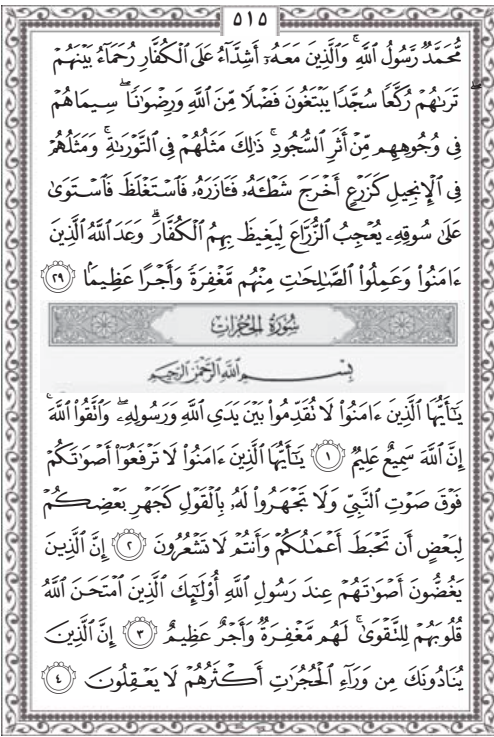 ٥١٥
مُّحَمَّدٌ رَّسُولُ ٱللَّهِۚ وَٱلَّذِينَ مَعَهُۥٓ أَشِدَّآءُ عَلَى ٱلْكُفَّارِ رُحَمَآءُ بَيْنَهُمْۖ
تَرَىٰهُمْ رُكَّعًا سُجَّدًا يَبْتَغُونَ فَضْلًا مِّنَ ٱللَّهِ وَرِضْوَٰنًاۖ سِيمَاهُمْ
فِى وُجُوهِهِم مِّنْ أَثَرِ ٱلسُّجُودِۚ ذَٰلِكَ مَثَلُهُمْ فِى ٱلتَّوْرَىٰةِۚ وَمَثَلُهُمْ
فِى ٱلْإِنجِيلِ كَزَرْعٍ أَخْرَجَ شَطْـَٔهُۥ فَـَٔازَرَهُۥ فَٱسْتَغْلَظَ فَٱسْتَوَىٰ
عَلَىٰ سُوقِهِۦ يُعْجِبُ ٱلزُّرَّاعَ لِيَغِيظَ بِهِمُ ٱلْكُفَّارَۗ وَعَدَ ٱللَّهُ ٱلَّذِينَ
ءَامَنُوا۟ وَعَمِلُوا۟ ٱلصَّٰلِحَٰتِ مِنْهُم مَّغْفِرَةً وَأَجْرًا عَظِيمًۢا ٢٩
سُورَةُ الحُجُرَاتِ
بِسْمِ ٱللَّهِ ٱلرَّحْمَٰنِ ٱلرَّحِيمِ
يَٰٓأَيُّهَا ٱلَّذِينَ ءَامَنُوا۟ لَا تُقَدِّمُوا۟ بَيْنَ يَدَىِ ٱللَّهِ وَرَسُولِهِۦۖ وَٱتَّقُوا۟ ٱللَّهَۚ
إِنَّ ٱللَّهَ سَمِيعٌ عَلِيمٌ ١ يَٰٓأَيُّهَا ٱلَّذِينَ ءَامَنُوا۟ لَا تَرْفَعُوٓا۟ أَصْوَٰتَكُمْ
فَوْقَ صَوْتِ ٱلنَّبِىِّ وَلَا تَجْهَرُوا۟ لَهُۥ بِٱلْقَوْلِ كَجَهْرِ بَعْضِكُمْ
لِبَعْضٍ أَن تَحْبَطَ أَعْمَٰلُكُمْ وَأَنتُمْ لَا تَشْعُرُونَ ٢ إِنَّ ٱلَّذِينَ
يَغُضُّونَ أَصْوَٰتَهُمْ عِندَ رَسُولِ ٱللَّهِ أُو۟لَٰٓئِكَ ٱلَّذِينَ ٱمْتَحَنَ ٱللَّهُ
قُلُوبَهُمْ لِلتَّقْوَىٰۚ لَهُم مَّغْفِرَةٌ وَأَجْرٌ عَظِيمٌ ٣ إِنَّ ٱلَّذِينَ
يُنَادُونَكَ مِن وَرَآءِ ٱلْحُجُرَٰتِ أَكْثَرُهُمْ لَا يَعْقِلُونَ ٤